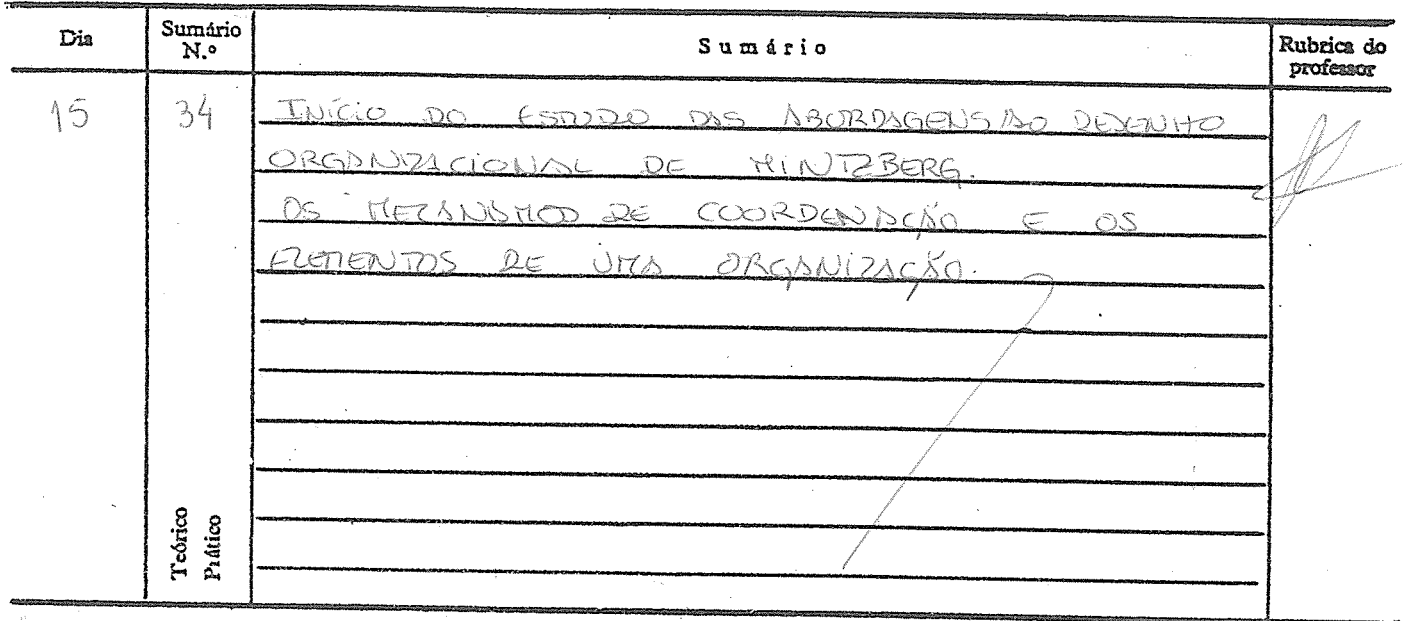 Dia
Sumário N.º
Sumário
Rubrica do professor
15
34
INÍCIO DO ESTUDO DAS ABORDAGENS AO DESENHO
ORGANIZACIONAL DE MINTZBERG.
OS MECANISMOS DE COORDENAÇÃO E OS
ELEMENTOS DE UMA ORGANIZAÇÃO.
Teórico
Prático